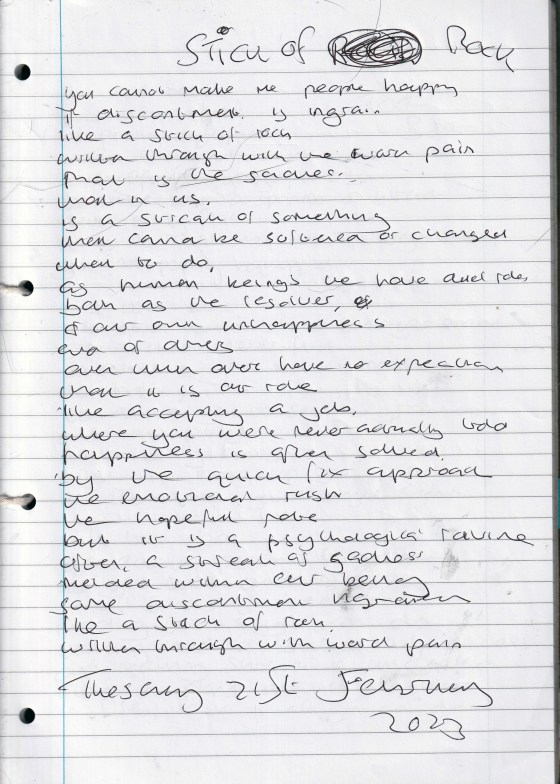 Stick of Rock
you cannot make me people happy
if discontment is ingrain
like a stick of rock
written through with the word pain
that is the sadness.
that in us,
is a streak of something
that cannot be softened or changed
when to do,
as human beings we have dual roles
both as the resolver,
of our own unhappiness
and of others
even when others have no expectation
that it is our role
like accepting a job,
where you were never actually told
happiness is often solved.
by the quick fix approach
the emotional rush
the hopeful
but it is a psychological ravine
often, a streak of sadness
melded within our being
some discontment ingrained
like a stick of rock
written through with word pain
Tuesday 21st February
2023